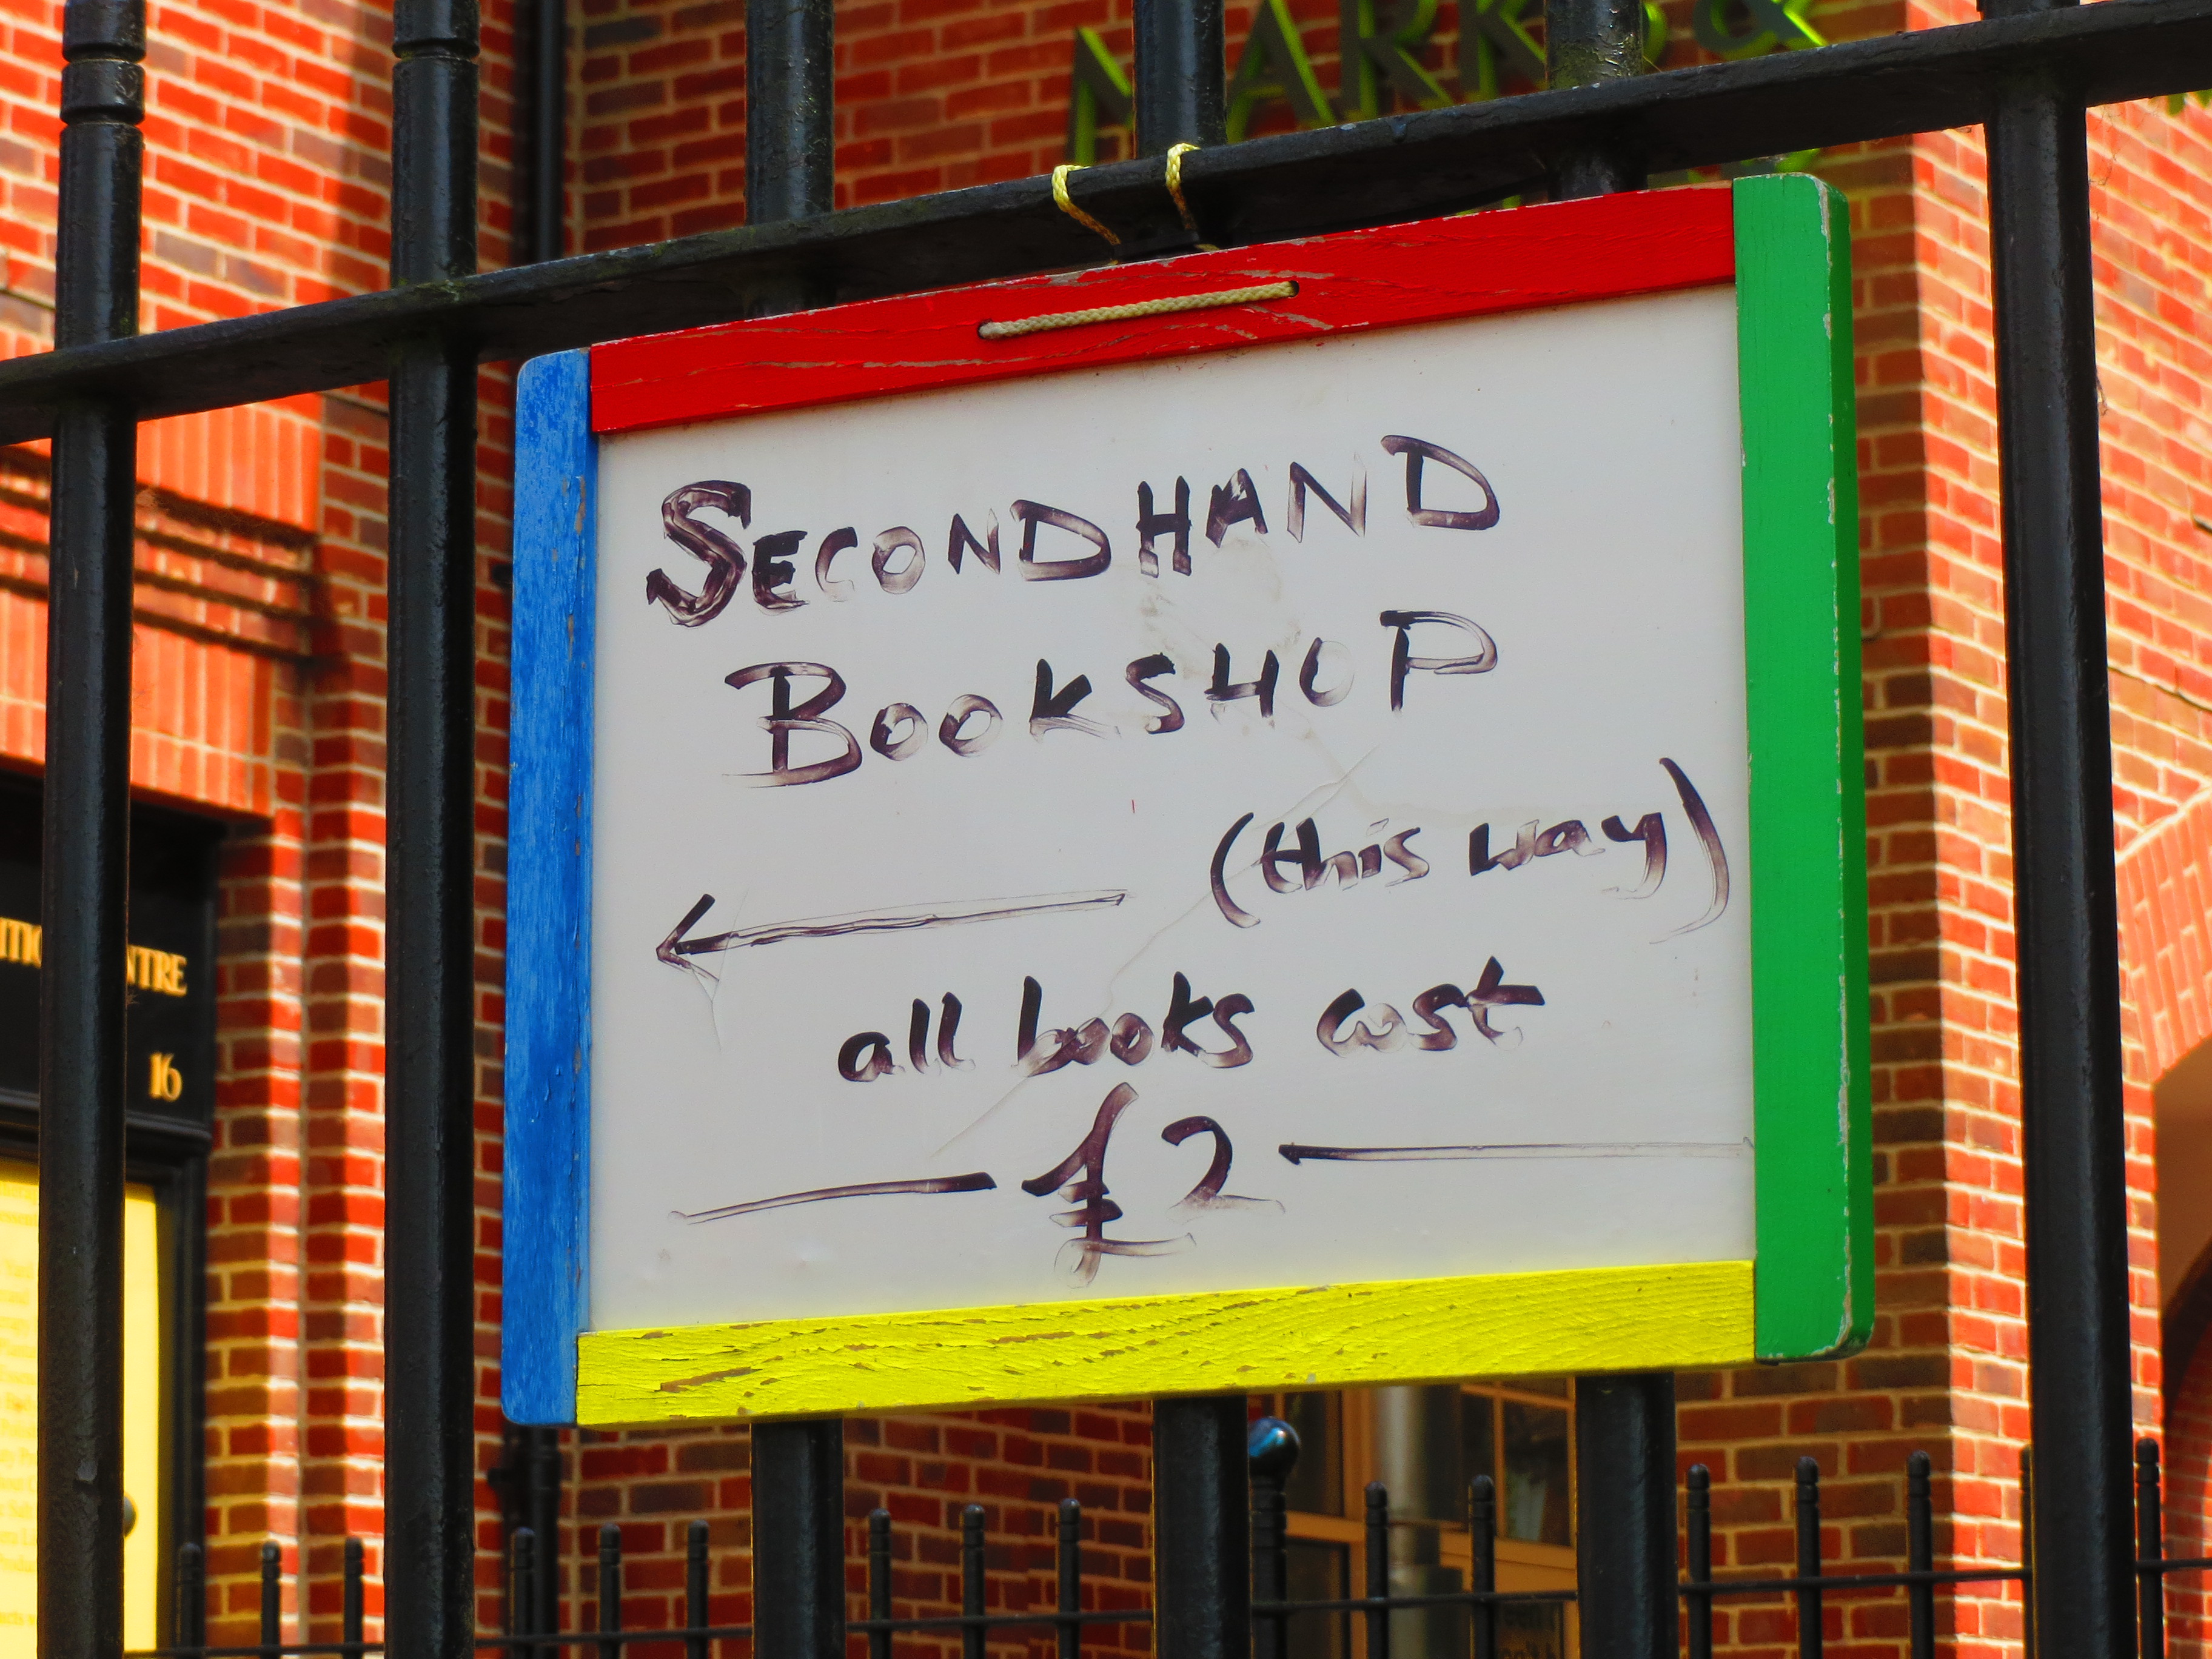 MARKS &
SECONDHAND
BOOKSHOP
(this way)
all books cost
£2
NTRE
16